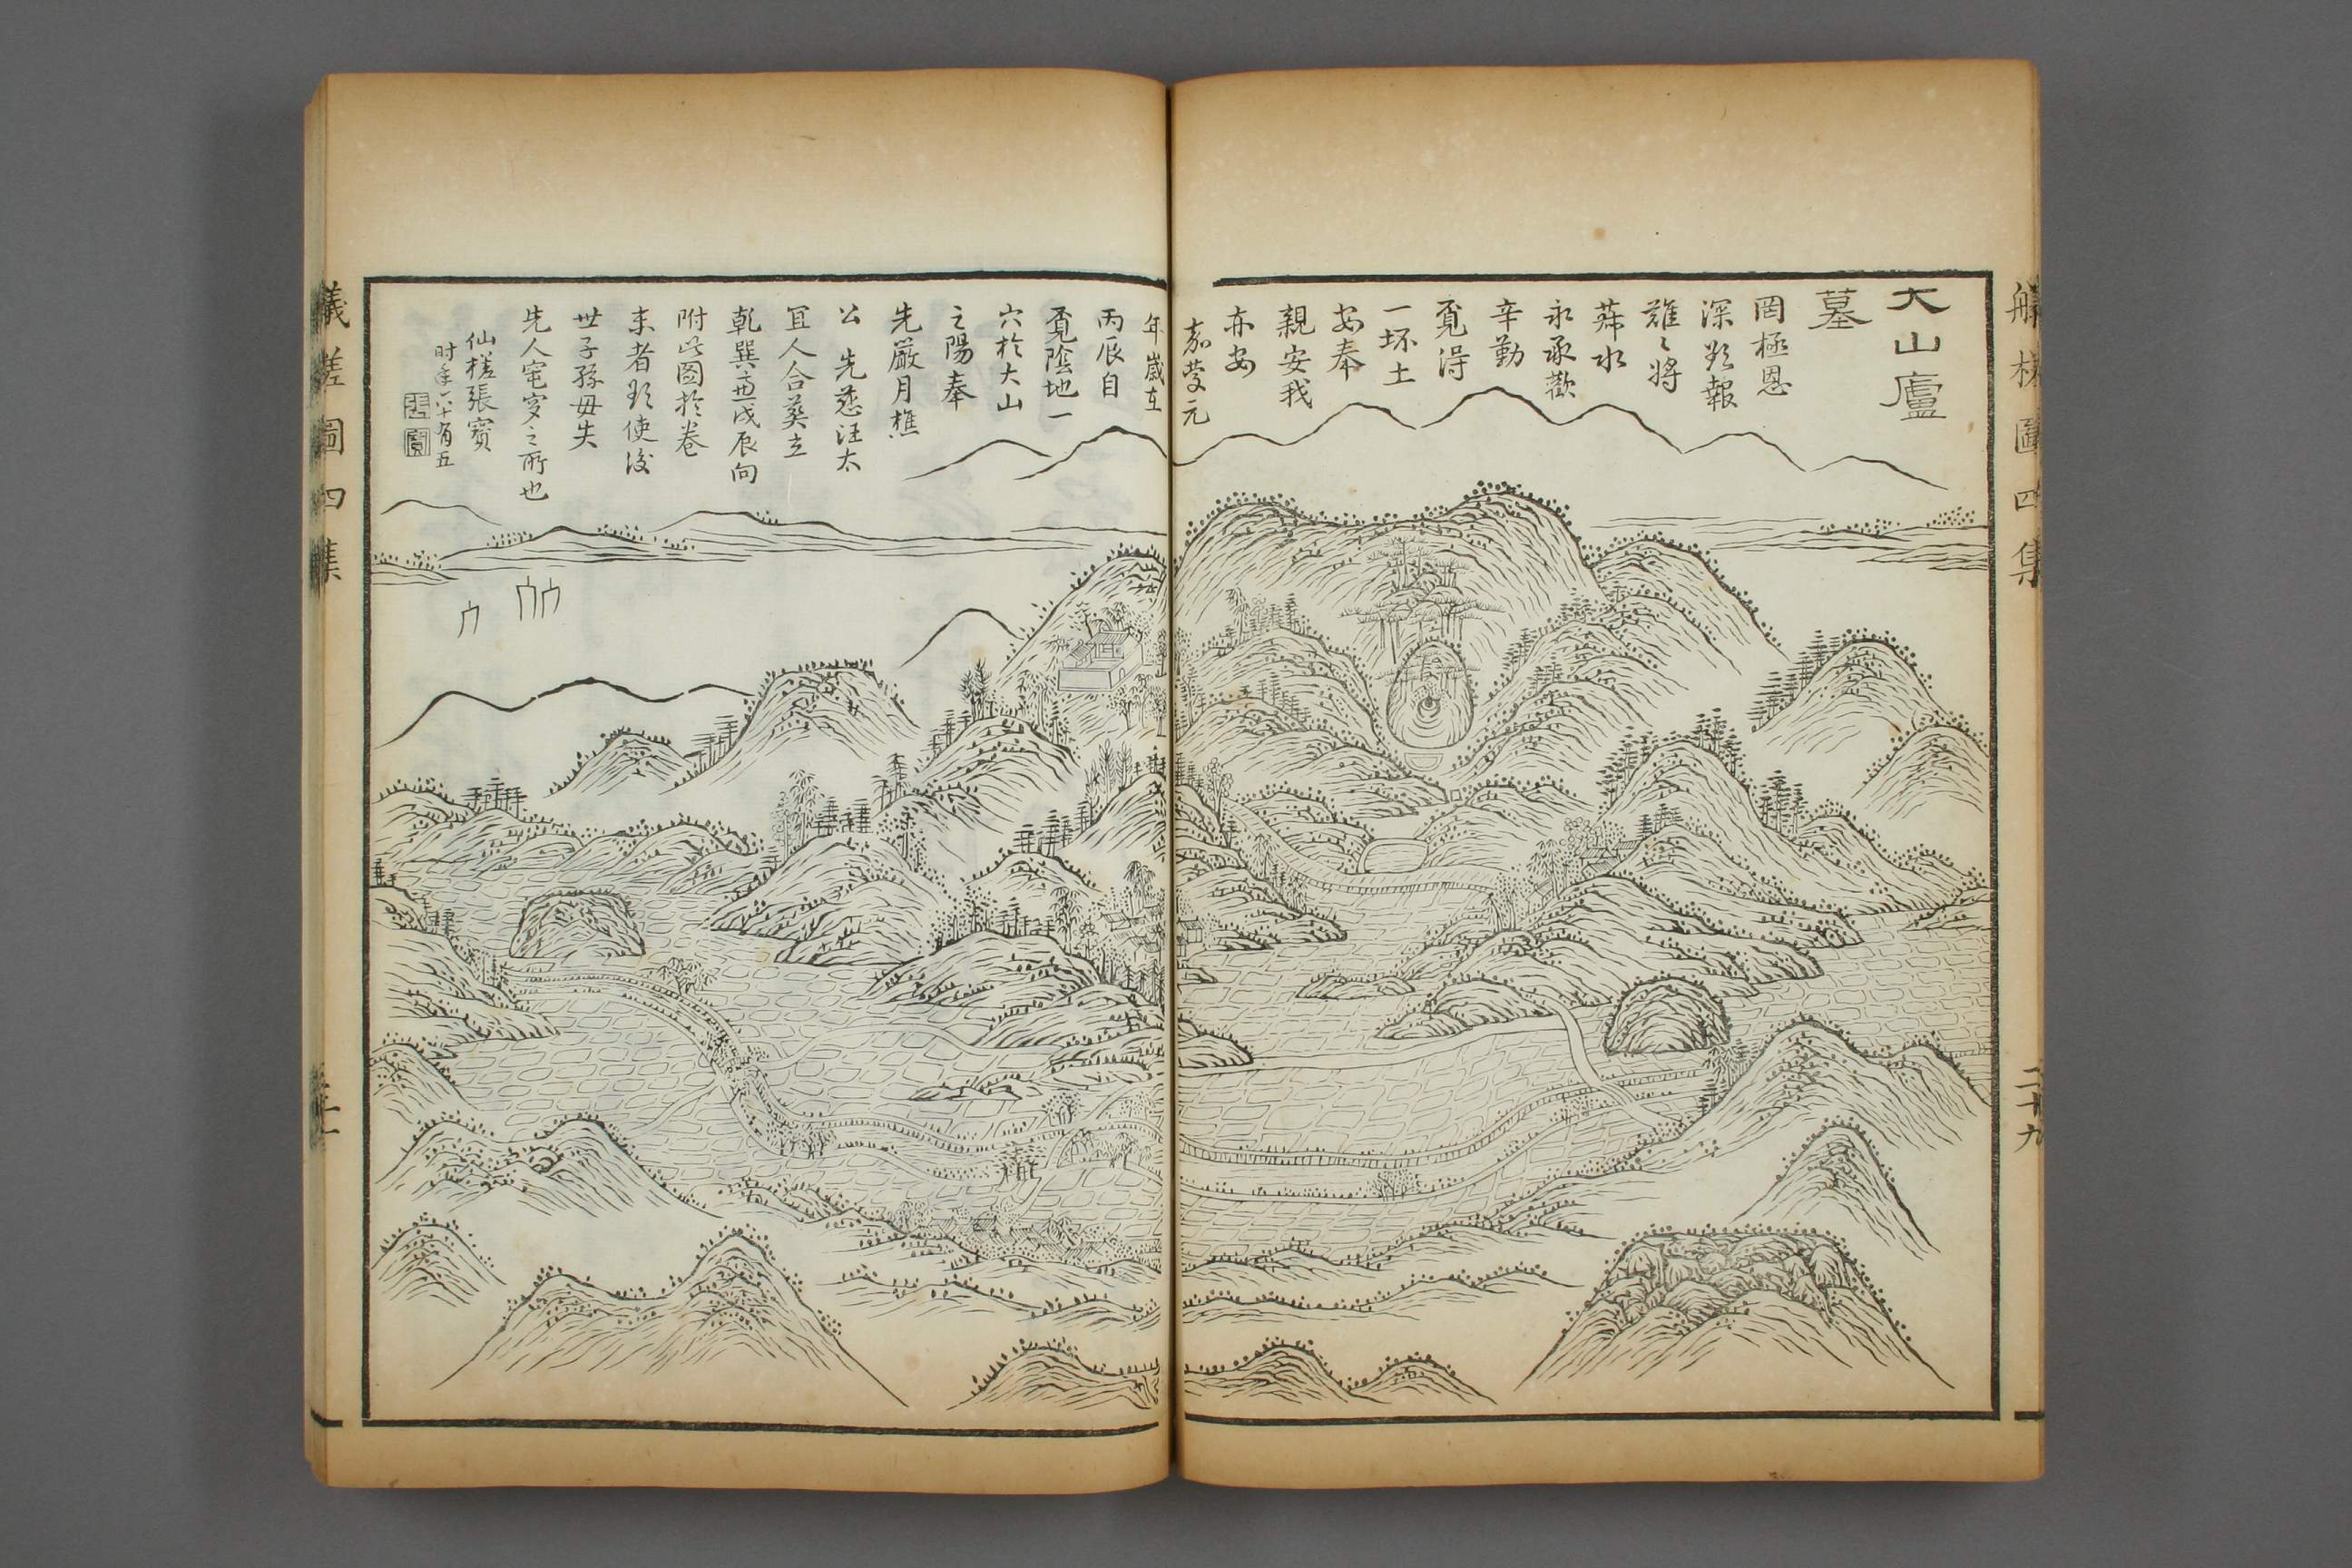 大山廬
墓
罔極恩
深欲報
難〻將
菽水
永承歡
辛勤
覓得
一坏土
安奉
親安我
亦安
嘉慶元
年歲在
丙辰自
覓陰地一
穴於大山
之陽奉
先嚴月樵
公 先慈汪太
宜人合葬立
乾巽兼戌辰向
附此圖於卷
末者欲使後
世子孫毋失
先人窀穸之所也
仙槎張寶
时年六十有五
張
寶
槎圖四集
二十九
槎圖四集